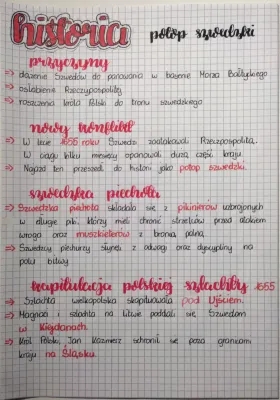 historia potop szwedzki
przyczyny
⇒ dążenie Szwedów do panowania w basenie Morza Bałtyckiego
⇒ osłabienie Rzeczypospolitej
⇒ roszczenia króla Polski do tronu szwedzkiego
nowy konflikt
⇒ W lecie 1655 roku Szwedzi zaatakowali Rzeczpospolitą.
W ciągu kilku miesięcy opanowali dużą część kraju.
⇒ Najazd ten przeszedł do historii jako potop szwedzki.
szwedzka piechota
⇒ Szwedzka piechota składała się z pikinierów uzbrojonych
w długie piki, którzy mieli chronić strzelców przed atakiem
wroga oraz muszkieterów z bronią palną.
⇒ Szwedzcy piechurzy słynęli z odwagi oraz dyscypliny na
polu bitwy.
kapitulacja polskiej szlachty 1655
⇒ Szlachta wielkopolska skapitulowała pod Ujściem.
⇒ Magnaci i szlachta na Litwie poddali się Szwedom
w Kiejdanach.
⇒ Król Polski Jan Kazimierz schronił się poza granicami
kraju na Śląsku.